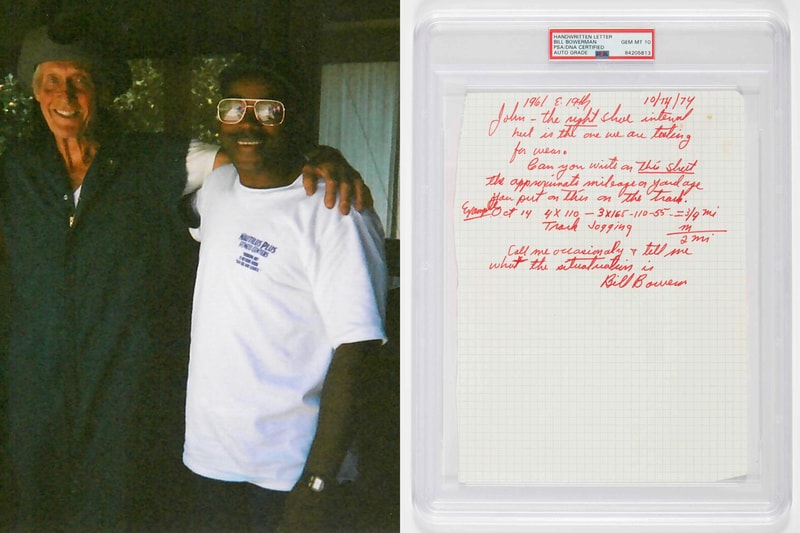 NAUTILUS PLUS
FITNESS CENTERS
HANDWRITTEN LETTER
BILL BOWERMAN
PSA/DNA CERTIFIED
AUTO GRADE
GEM MT 10
84205813
1961 E. 19th 10/14/74
John - the right shoe internal
heel is the one we are testing
for wear.
Can you write on this sheet
the approximate mileage or yardage
you put on this on the track.
Example Oct 14 4 x 110 - 3x165-110-55- = 3/4 mi
Track Jogging m
2 mi
Call me occasionaly & tell me
what the situatuation is
Bill Bowerm